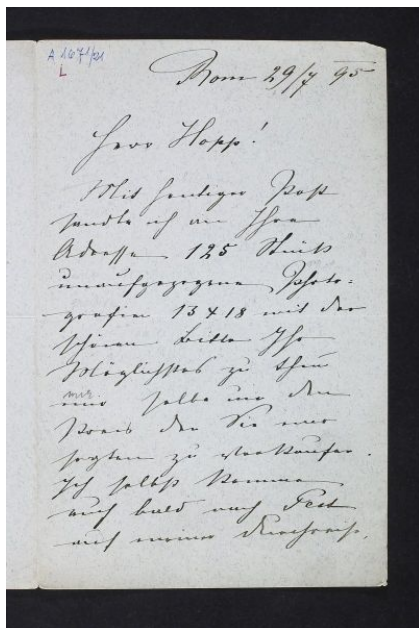 A 1671/21
L
Rom 29/7 95
Herr Hopp!
Mit heutiger Post
sandte ich an Ihre
Adresse 125 Stück
unaufgezogene Photo-
grafien 13 x 18 mit der
schönen Bitte Ihr
Möglichstes zu thun
mir selbe um den
Preis den Sie mir
sagten zu verkaufen.
Ich selbst komme
auch bald nach Pest
auf meiner Durchreise.